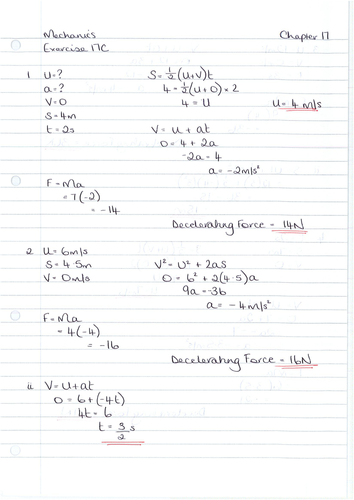 Mechanics Chapter 17
Exercise 17C
1 u=? S=½(u+v)t
a=? 4=½(u+0)×2
v=0 4=u u=4m/s
s=4m
t=2s v=u+at
0=4+2a
-2a=4
a=-2m/s²
F=Ma
=7(-2)
=-14
Decelerating Force = 14N
2 u=6m/s
s=4.5m v²=u²+2as
v=0m/s 0=6²+2(4.5)a
9a=-36
a=-4m/s²
F=Ma
=4(-4)
=-16
Decelerating Force = 16N
ii v=u+at
0=6+(-4t)
4t=6
t=3/2 s